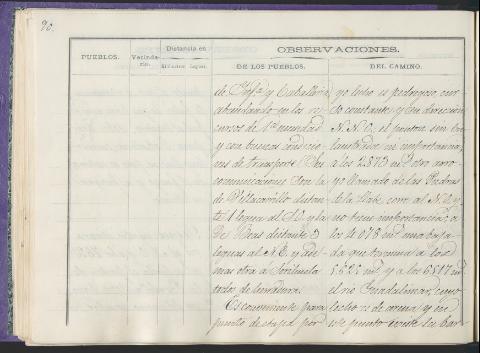 90.
PUEBLOS.
Vecinda-
rio.
Distancia en
Kilómetros
Leguas.
OBSERVACIONES.
DE LOS PUEBLOS.
DEL CAMINO.
de Infª y Caballeria
abundando en los re
cursos de 1ª necesidad
y con buenas condicio
nes de transporte. Sus
comunicaciones son la
de Villacarrillo distan
te 1 legua al S.O. y la
de Beas distante 3
leguas al N.E. y ade
mas otra a Sorihuela
todas de herradura.
Es conveniente para
punto de etapa por
yo lecho es pedregoso cur
so constante, y su direccion
N.N.O. el ponton sin ba
laustradas, sin importancia,
a los 2873 m.s otro arro
yo llamado de las Piedras
de la corre al N.O. y
no tiene importancia, a
los 4.078 m.s una baja
da que termina a los
m.s y a los 6517 m.s
el rio Guadalimar, cuyo
lecho es de arena, y en
este punto existe la bar-